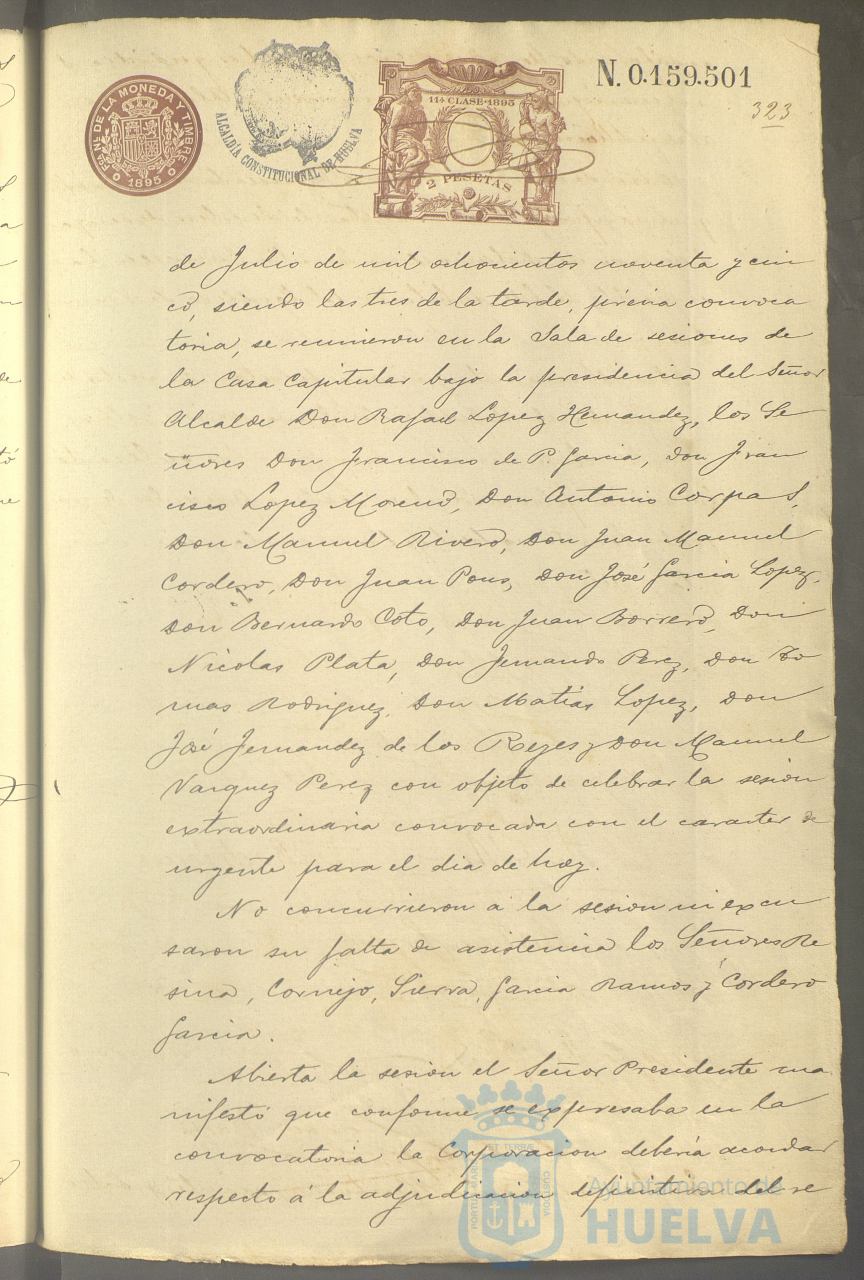 N. 0.159.501
323
FCA. Nal. DE LA MONEDA Y TIMBRE
1895
ALCALDÍA CONSTITUCIONAL DE HUELVA
11ª CLASE·1895
2 PESETAS
de Julio de mil ochocientos noventa y cin
co, siendo las tres de la tarde, prévia convoca
toria, se reunieron en la Sala de sesiones de
la Casa Capitular bajo la presidencia del Señor
Alcalde Don Rafael Lopez Hernandez, los Se
ñores Don Francisco de P. Garcia, Don Fran
cisco Lopez Moreno, Don Antonio Corpas,
Don Manuel Rivero, Don Juan Manuel
Cordero, Don Juan Pons, Don José Garcia Lopez,
Don Bernardo Coto, Don Juan Borrero, Don
Nicolas Plata, Don Fernando Perez, Don To
mas Rodriguez, Don Matias Lopez, Don
José Fernandez de los Reyes y Don Manuel
Vazquez Perez con objeto de celebrar la sesion
extraordinaria convocada con el caracter de
urgente para el dia de hoy.
No concurrieron a la sesion ni excu
saron su falta de asistencia los Señores Re
sina, Cornejo, Sierra, Garcia Ramos y Cordero
Garcia.
Abierta la sesion el Señor Presidente ma
nifestó que conforme se expresaba en la
convocatoria la Corporacion debería acordar
respecto á la adjudicacion definitiva del re
Ayuntamiento de
HUELVA